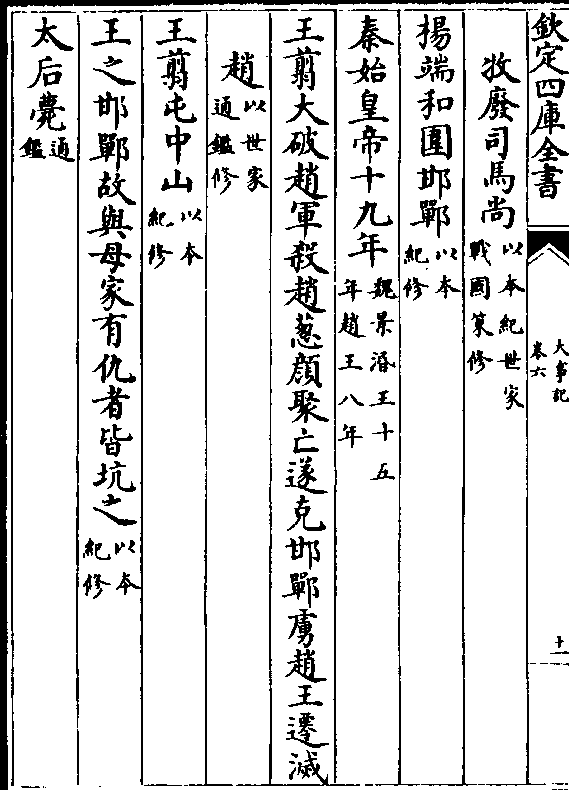 欽定四庫全書
大事記
卷六
十一
牧廢司馬尚以本紀世家戰國策修
揚端和圍邯鄲以本紀修
秦始皇帝十九年魏景湣王十五年趙王八年
王翦大破趙軍殺趙葱顔聚亡遂克邯鄲虜趙王遷滅
趙以世家通鑑修
王翦屯中山以本紀修
王之邯鄲故與母家有仇者皆坑之以本紀修
太后薨通鑑